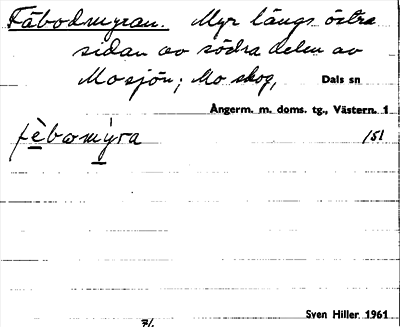 Fäbodmyran. Myr längs östra
sidan av södra delen av
Mosjön; Mo skog, Dals sn
Ångerm. m. doms. tg., Västern. 1
fèbomýra 151
Sven Hiller 1961
7/.